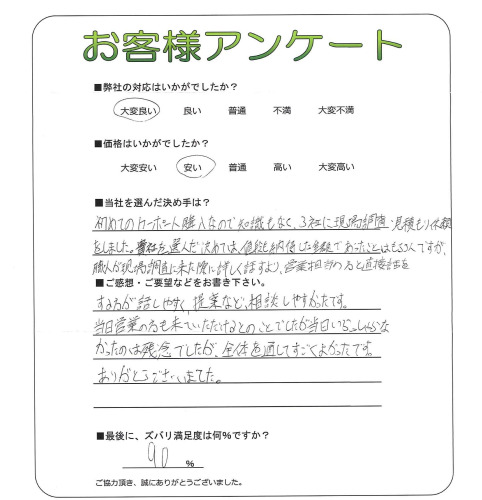 お客様アンケート
■弊社の対応はいかがでしたか?
大変良い 良い 普通 不満 大変不満
■価格はいかがでしたか?
大変安い 安い 普通 高い 大変高い
■当社を選んだ決め手は?
初めてのカーポート購入なので知識もなく、3社に現場調査・見積もり依頼
をしました。貴社を選んだ決めては、価格も納得した金額であったことはもちろんですが、
職人が現場調査に来た際に詳しく話すより、営業担当の方と直接話を
■ご感想・ご要望などをお書き下さい。
する方が話しやすく、提案など、相談しやすかったです。
当日営業の方も来ていただけるとのことでしたが当日いらっしゃらな
かったのは残念でしたが、全体を通してすごくよかったです。
ありがとうございました。
■最後に、ズバリ満足度は何%ですか?
90 %
ご協力頂き、誠にありがとうございました。